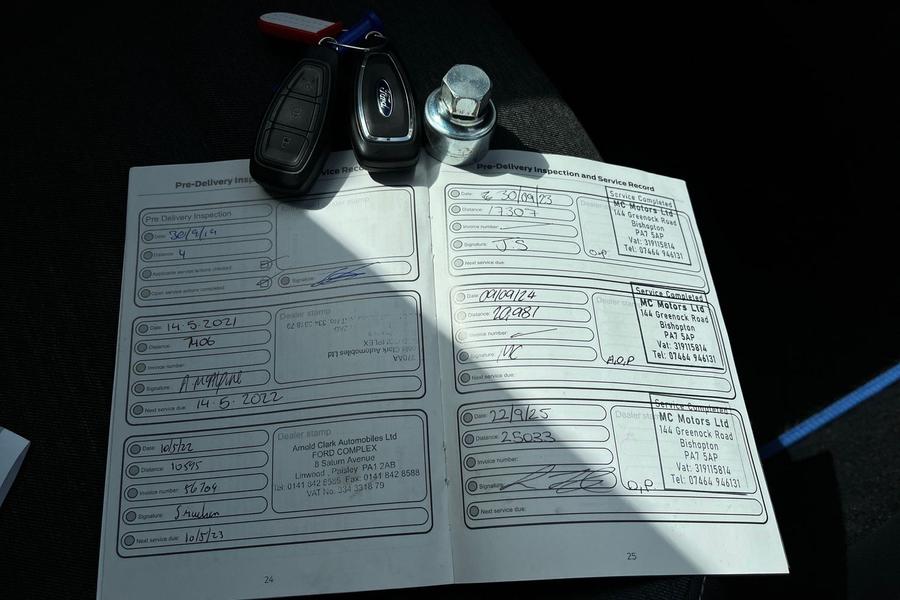 Ford
Pre-Delivery Insp
Service Record
Pre Delivery Inspection
Dealer stamp
Date: 30/9/19
Distance: 4
Applicable service actions checked
Open service actions completed
Signature:
Date: 14.5.2021
Distance: 7406
Invoice number:
Signature:
Next service due: 14.5.2022
Dealer stamp
Date: 10/5/22
Distance: 10595
Invoice number: 56704
Signature:
Next service due: 10/5/23
Dealer stamp
Arnold Clark Automobiles Ltd
FORD COMPLEX
8 Saturn Avenue
Linwood, Paisley PA1 2AB
Tel: 0141 842 8585 Fax: 0141 842 8588
VAT No. 334 3318 79
24
Pre-Delivery Inspection and Service Record
Date: 30/09/23
Distance: 17307
Invoice number:
Signature: J.S
Next service due:
Dealer
O,P
Service Completed
MC Motors Ltd
144 Greenock Road
Bishopton
PA7 5AP
Vat: 319115814
Tel: 07464 946131
Date: 09/09/24
Distance: 20,981
Invoice number:
Signature: MC
Next service due:
Dealer
A,O,P
Service Completed
MC Motors Ltd
144 Greenock Road
Bishopton
PA7 5AP
Vat: 319115814
Tel: 07464 946131
Date: 22/9/25
Distance: 25033
Invoice number:
Signature:
Next service due:
Dealer
O,P
Service Completed
MC Motors Ltd
144 Greenock Road
Bishopton
PA7 5AP
Vat: 319115814
Tel: 07464 946131
25